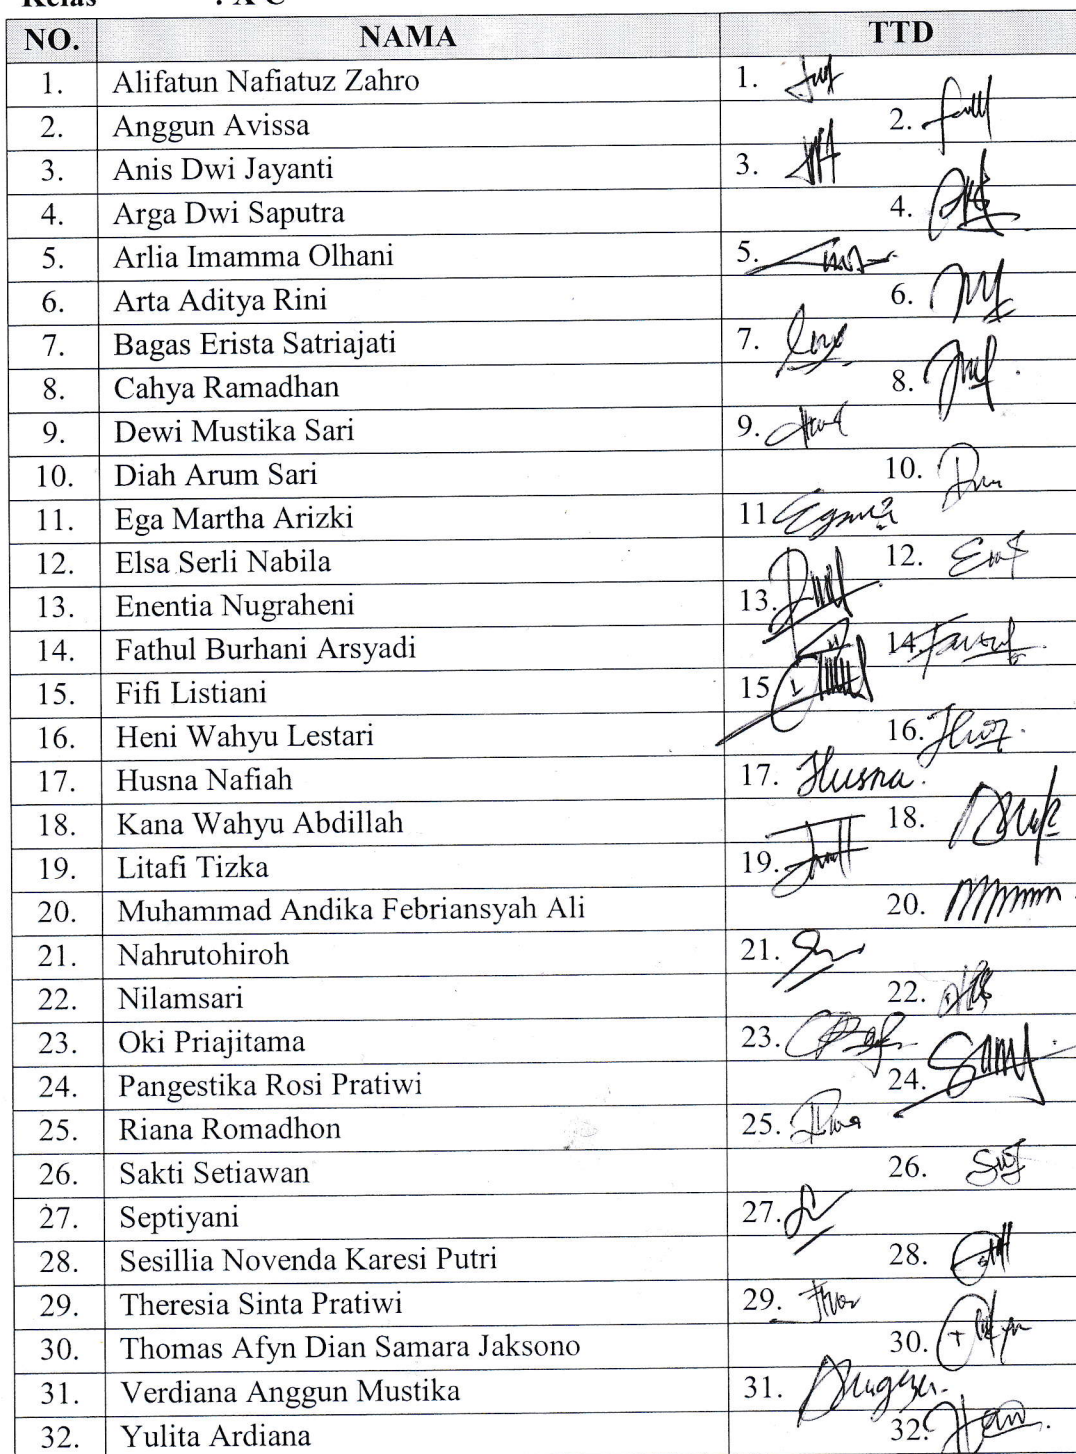 Kelas : X C
NO. NAMA TTD
1. Alifatun Nafiatuz Zahro 1.
2. Anggun Avissa 2.
3. Anis Dwi Jayanti 3.
4. Arga Dwi Saputra 4.
5. Arlia Imamma Olhani 5.
6. Arta Aditya Rini 6.
7. Bagas Erista Satriajati 7.
8. Cahya Ramadhan 8.
9. Dewi Mustika Sari 9.
10. Diah Arum Sari 10.
11. Ega Martha Arizki 11
12. Elsa Serli Nabila 12.
13. Enentia Nugraheni 13.
14. Fathul Burhani Arsyadi 14.
15. Fifi Listiani 15
16. Heni Wahyu Lestari 16.
17. Husna Nafiah 17. Husna.
18. Kana Wahyu Abdillah 18.
19. Litafi Tizka 19.
20. Muhammad Andika Febriansyah Ali 20.
21. Nahrutohiroh 21.
22. Nilamsari 22.
23. Oki Priajitama 23.
24. Pangestika Rosi Pratiwi 24.
25. Riana Romadhon 25.
26. Sakti Setiawan 26.
27. Septiyani 27.
28. Sesillia Novenda Karesi Putri 28.
29. Theresia Sinta Pratiwi 29.
30. Thomas Afyn Dian Samara Jaksono 30.
31. Verdiana Anggun Mustika 31.
32. Yulita Ardiana 32.